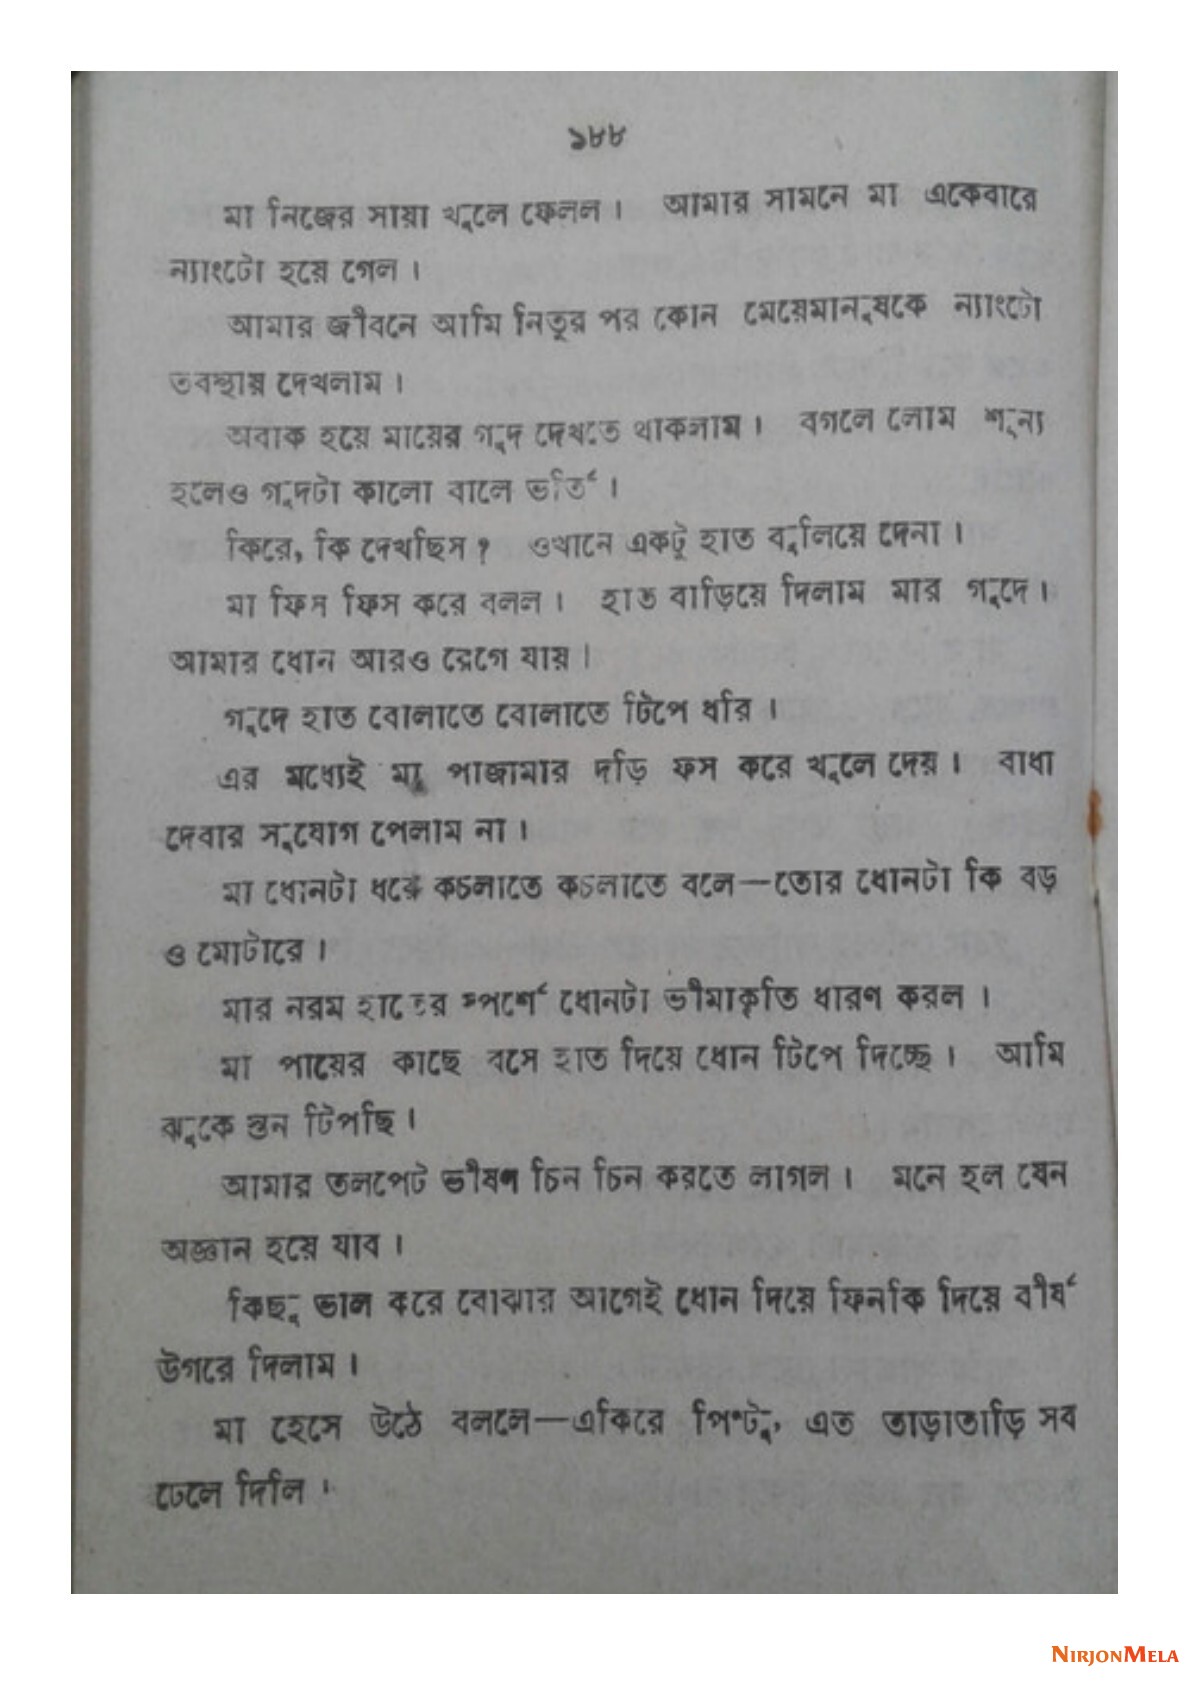 ১৮৮
মা নিজের সায়া খুলে ফেলল। আমার সামনে মা একেবারে
ন্যাংটো হয়ে গেল।
আমার জীবনে আমি নিতুর পর কোন মেয়েমানুষকে ন্যাংটো
তবস্থায় দেখলাম।
অবাক হয়ে মায়ের গুদ দেখতে থাকলাম। বগলে লোম শূন্য
হলেও গুদটা কালো বালে ভর্তি।
কিরে, কি দেখছিস? ওখানে একটু হাত বুলিয়ে দেনা।
মা ফিস ফিস করে বলল। হাত বাড়িয়ে দিলাম মার গুদে।
আমার ধোন আরও রেগে যায়।
গুদে হাত বোলাতে বোলাতে টিপে ধরি।
এর মধ্যেই মা পাজামার দড়ি ফস করে খুলে দেয়। বাধা
দেবার সুযোগ পেলাম না।
মা ধোনটা ধরে কচলাতে কচলাতে বলে—তোর ধোনটা কি বড়
ও মোটারে।
মার নরম হাতের স্পর্শে ধোনটা ভীমাকৃতি ধারণ করল।
মা পায়ের কাছে বসে হাত দিয়ে ধোন টিপে দিচ্ছে। আমি
ঝুকে স্তন টিপছি।
আমার তলপেট ভীষণ চিন চিন করতে লাগল। মনে হল যেন
অজ্ঞান হয়ে যাব।
কিছু ভাল করে বোঝার আগেই ধোন দিয়ে ফিনকি দিয়ে বীর্য
উগরে দিলাম।
মা হেসে উঠে বললে—একিরে পিণ্টু, এত তাড়াতাড়ি সব
ঢেলে দিলি।
NIRJONMELA